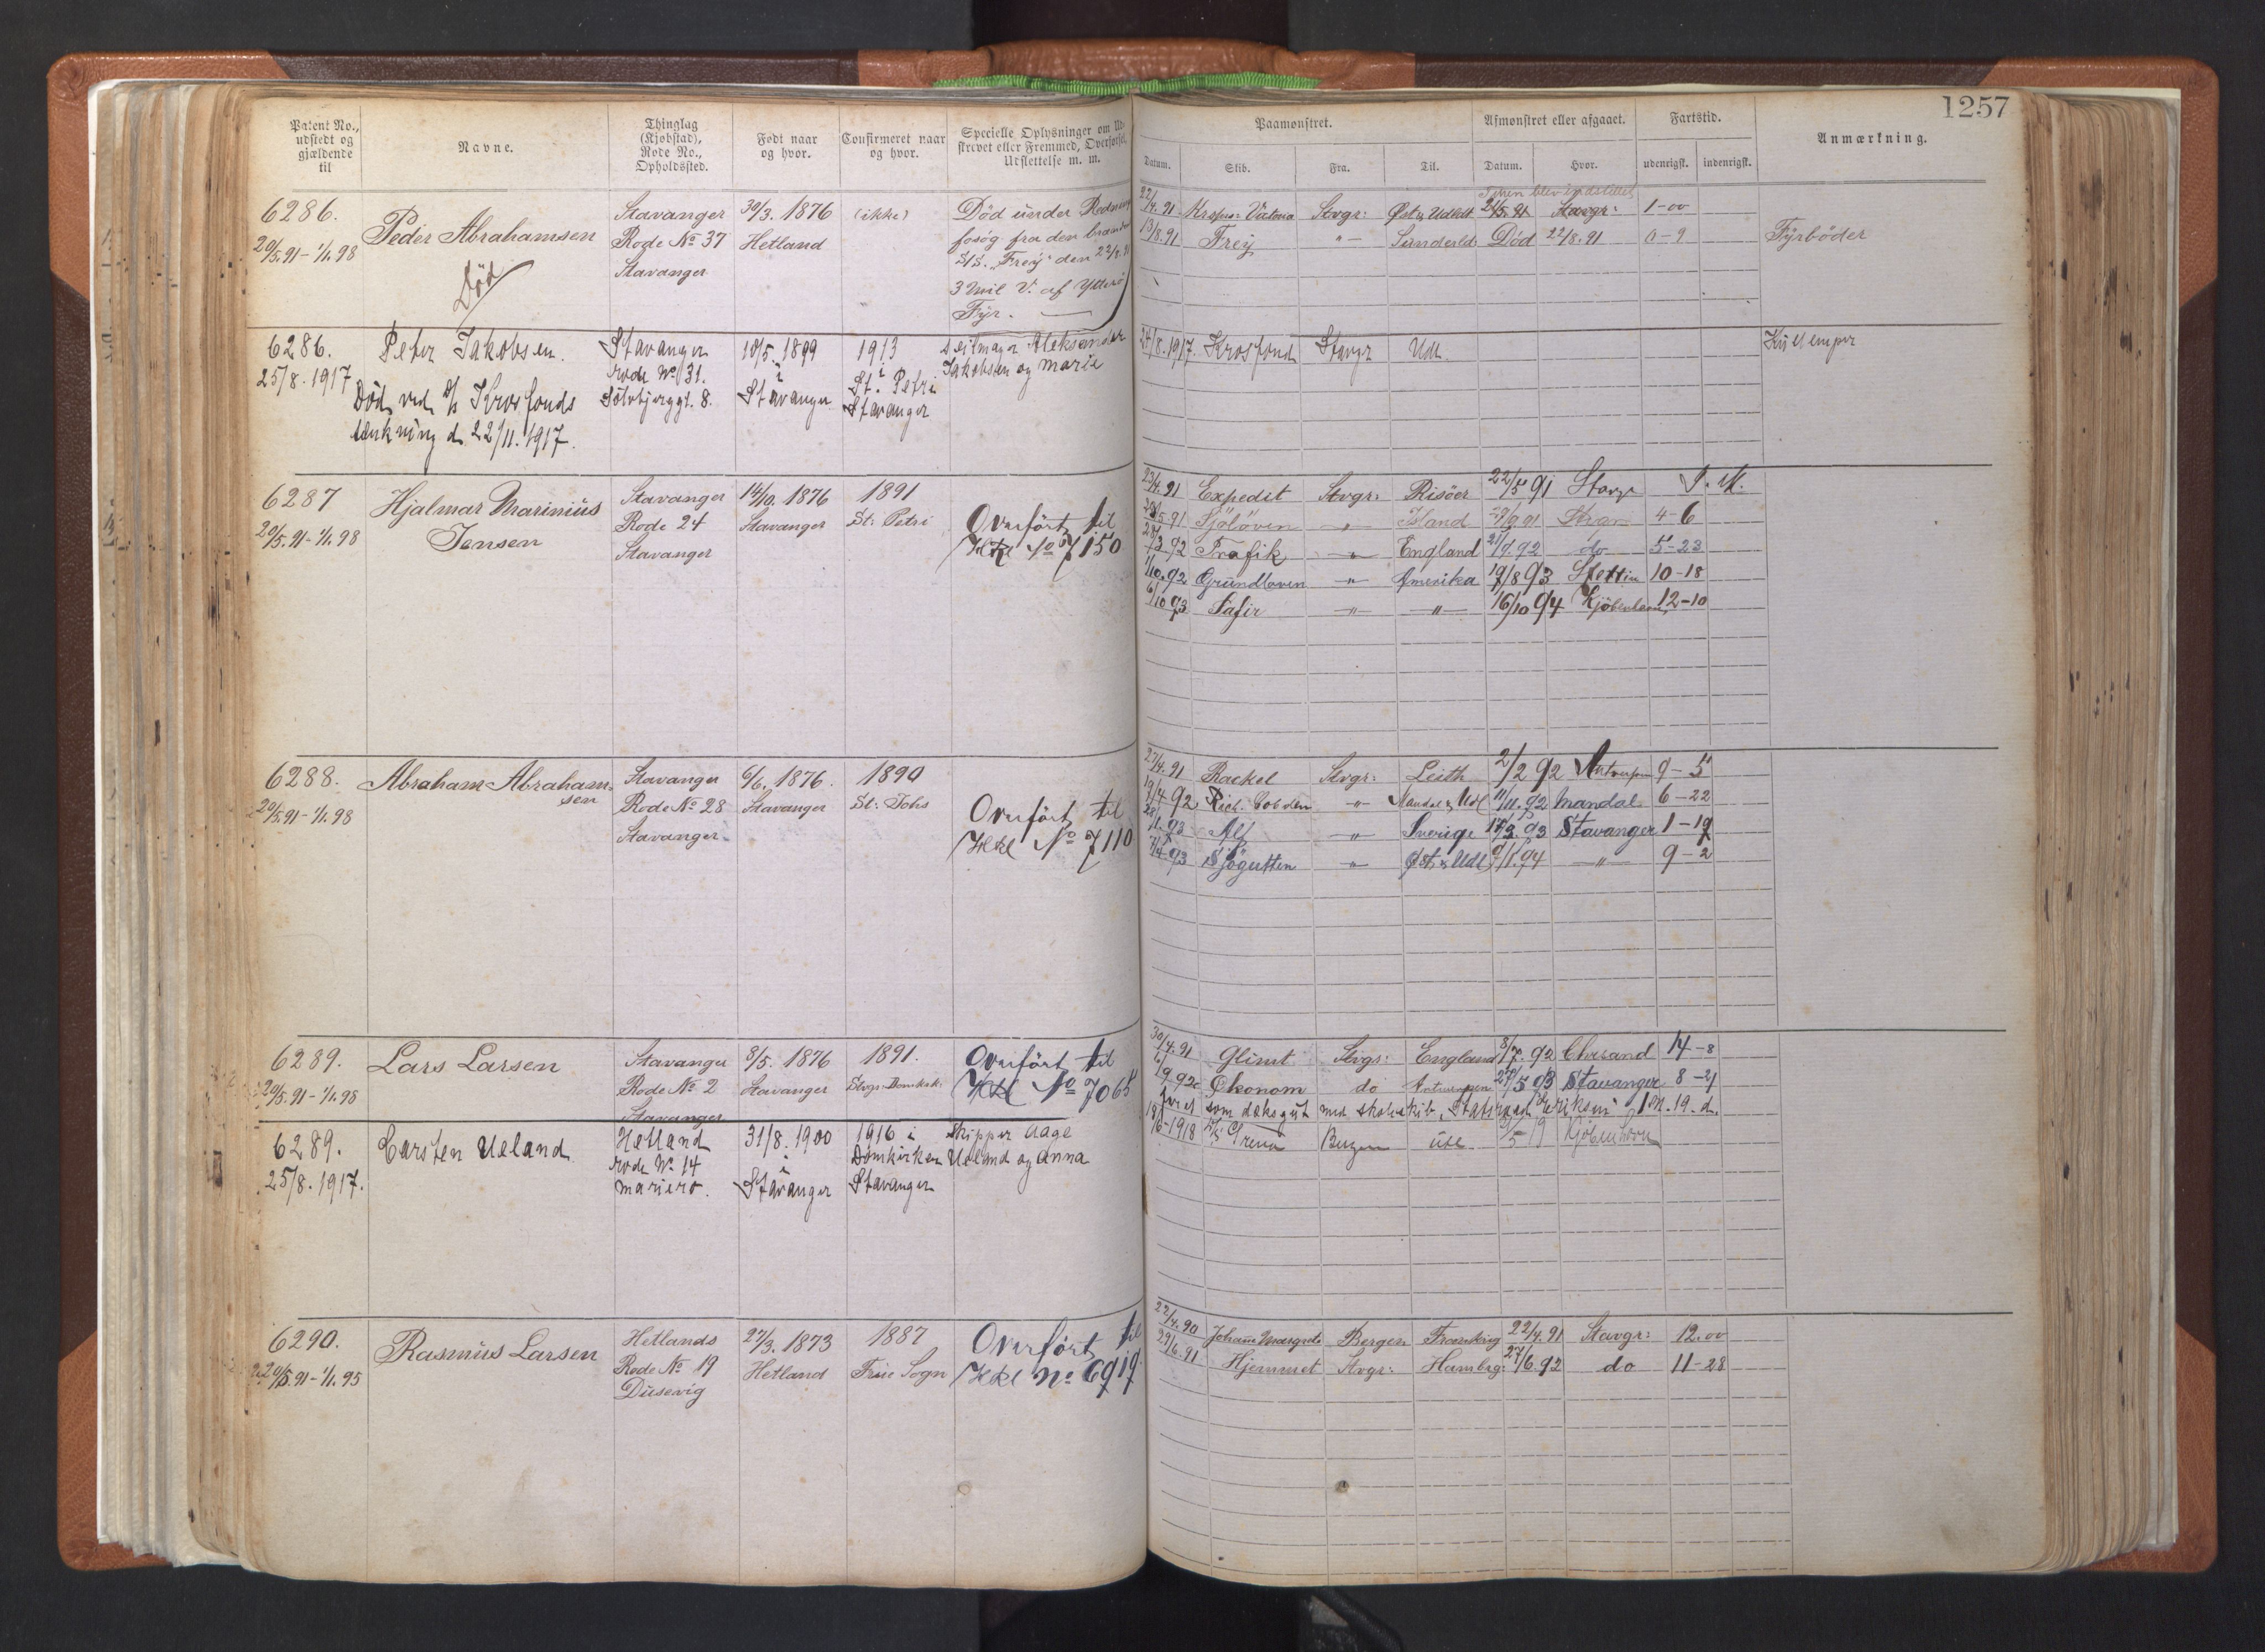 1257
Patent No., udstedt og gjældende til | Navne. | Thinglag (Kjøbstad), Rode No., Opholdssted. | Født naar og hvor. | Confirmeret naar og hvor. | Specielle Oplysninger om Ud- skrevet eller Fremmed, Overførsel, Udslettelse m. m.
Paamønstret. | Afmønstret eller afgaaet. | Fartstid. | Anmærkning.
Datum. | Skib. | Fra. | Til. | Datum. | Hvor. | udenrigsk. | indenrigsk.
6286. Peder Abrahamsen Stavanger 30/3. 1876 (ikke) Død under
20/5.91-1/1.98 Rode No 37 Hetland fra den
Død Stavanger S/S. "Frey" den 22/8.91
3 Mil V. af
Fyr.
22/4.91 Victoria Stvgr: Øst & Udldt 21/5.91 Stavgr: 1-00
13/8.91 Frey " Sunderld: Død 22/8.91 0-9 Fyrbøder
6286. Peter Jakobsen. Stavanger 10/5. 1899 1913 Seilmager Aleksander
25/8.1917 rode No 31. i i Jakobsen og Marie
Død ved D/S Krosfonds Sølvbjerggt. 8. Stavanger St. Petri
sænkning d. 22/11.1917. Stavanger
24/8.1917. Krosfond Stavgr Udl. Kullemper
6287 Hjalmar Marinius Stavanger 14/10. 1876 1891 Overført til
20/5.91-1/1.98 Jensen Rode 24 Stavanger St: Petri No 7150
Stavanger
23/4.91 Expedit Stvgr: Risöer 22/5 91 Stavgr I. M.
Sjöløven " Island 4-6
Trafik " England do 5-23
Grundloven " Amerika 19/8 93 Stettin 10-18
6/10 93 Safir " " 16/10 94 Kjöbenhavn 12-10
6288. Abraham Abraham- Stavanger 6/6. 1876. 1890 Overført til
20/5.91-1/1.98 sen Rode No 28 Stavanger St: Johs No 7110
Stavanger
27/4.91 Rackel Stvgr: Leith 2/2 92 Antwerpen 9-5
19/4 92 Rich. Cobden " Mandal & Udl 11/11.92 Mandal 6-22
Alf " Sverige 17/3.93 Stavanger 1-19
Sjögutten " Øst. & Udl 9/1.94 " 9-2
6289. Lars Larsen Stavanger 8/5. 1876 1891. Overført til
20/5.91-1/1.98 Rode No 2 Stavanger Stvgr. Domkirk. No 7065
Stavanger
30/4.91 Glimt Stvgr: England 8/7.92 Chrsand 14-8
Økonom do Antwerpen 27/5 93 Stavanger 8-21
faret som dæksgut med skoleskib "Statsraad Eriksen" 1 M. 19. d.
6289. Carsten Ueland Hetland 31/8. 1900 1916 i Skipper Aage
25/8.1917. rode No 14 i Domkirken Ueland og Anna
Mariero. Stavanger Stavanger
1918 Bergen Kjøbenhavn
6290. Rasmus Larsen Hetlands 27/3. 1873 1887 Overført til
20/5.91-1/1.95 Rode No 19 Hetland Frue Sogn No 6919
Dusevig
22/4.90 Johan Bergen Frankrig 22/4.91 Stavgr: 12.00
29/6.91 Hjemmet Stvgr: Hambrg: 27/6.92 do 11-28